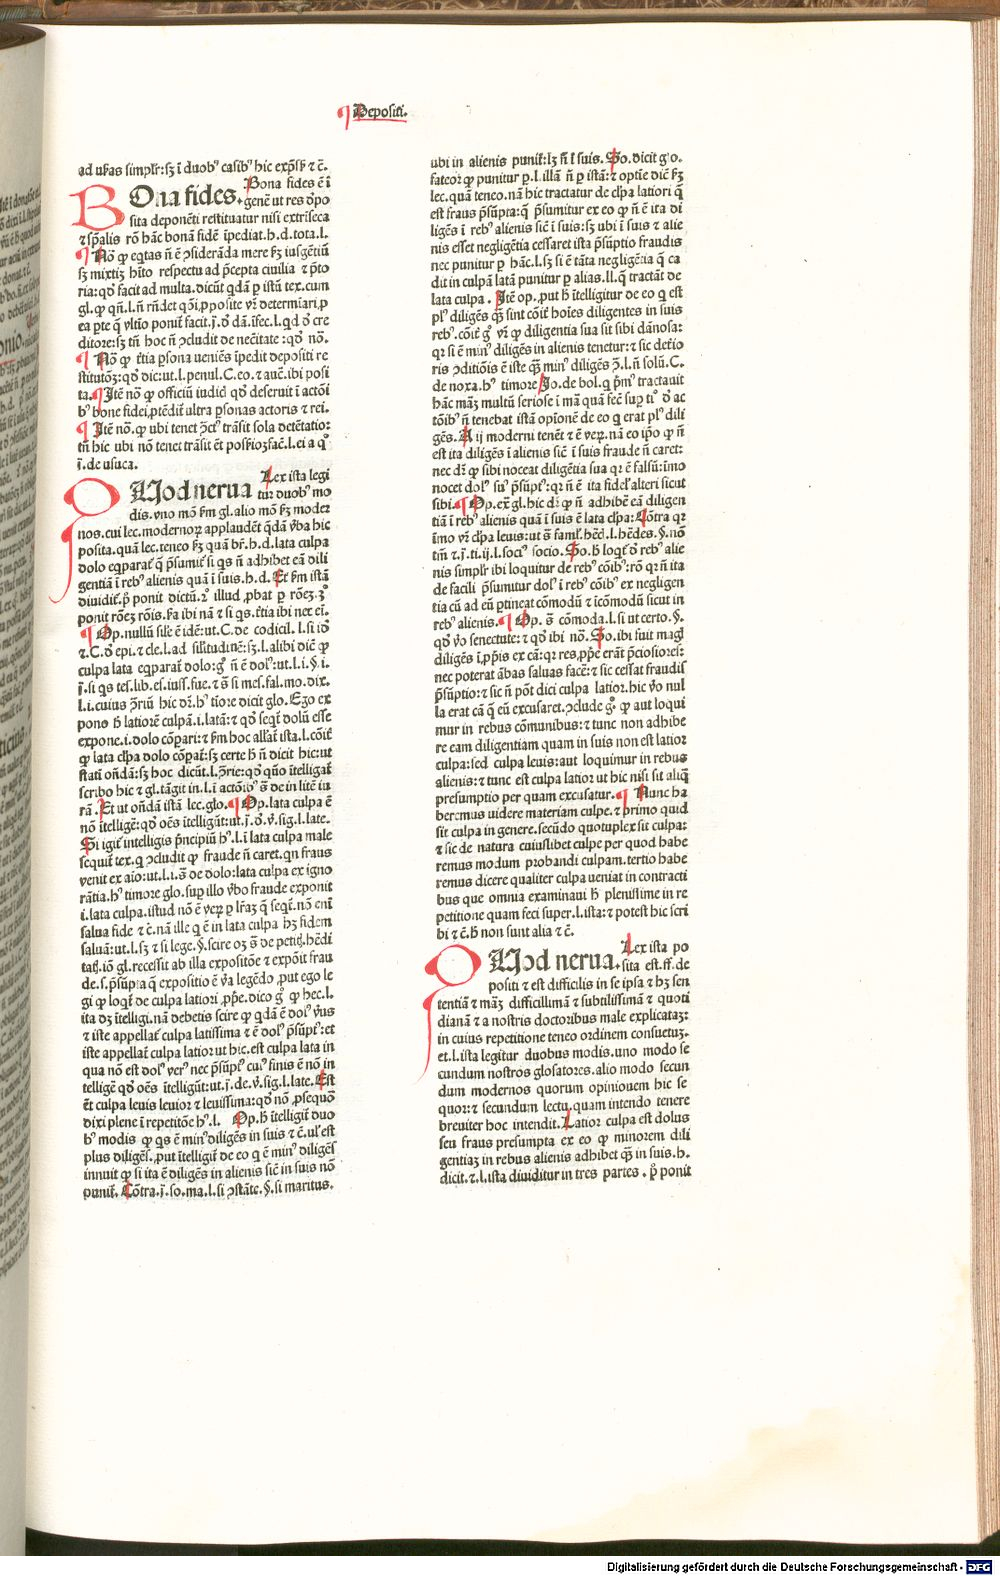 ¶ Depositi.
ad vr̄as simplr̄:sꝫ ī duobꝰ casibꝰ hic exp̄sis ⁊ c̄.
Bona fides. Bona fides ē ī
genē ut res depo
sita deponēti restituatur nisi extrīseca
⁊ sp̄alis rō hāc bonā fidē īpediat.h.d.tota.l.
¶ Nō ꝙ eqtas n̄ ē ↄsiderāda mere
respectu ad p̄cepta ciuilia ⁊ p̄to
ria:qd̓ facit ad multa.dicūt qdā ꝑ istū tex.cum
ditore:sꝫ tn̄ hoc n̄ ↄcludit de necitate :qd̓ nō.
¶ Nō ꝙ t̄tia ꝑsona ueniēs īpedit depositi re
stitutōꝫ:qd̓ dic:ut.l.penul.C.eo.⁊ auc̄.ibi posi
ta.¶ Itē nō ꝙ officiū iudicꝭ qd̓ deseruit ī actōi
bꝰ bone fidei,ptēdit̄ ultra ꝑsonas actoris ⁊ rei.
¶ Itē nō.ꝙ ubi tenet ↄc̄tꝰ trāsit sola detētatio:
j̄.de usuca.
Quod nerua Lex ista legi
tur duobꝰ mo
dis.vno mō fm gl.alio mō fꝫ moder
nos.cui lec.modernoꝝ applaudēt qdā v̄ba hic
posita.quā lec.teneo fꝫ quā br̄.h.d.lata culpa
dolo eqparat̄ q̄ p̄sumit̄ si qs n̄ adhibet eā dili
gentiā ī rebꝰ alienis quā ī suis.h.d.Et fm istā
diuidit̄.p̄ ponit dictū.2ꝰ illud ,pbat ꝑ rōeꝫ.3ꝰ
ponit rōeꝫ rōis.
¶ Op.nullū sile ē idē:ut.C.de codicil.l.si idē
culpa lata eqparat̄ dolo:gͦ n̄ ē dolꝰ:ut.l.i.§.i.
j̄.si qs tes.lib.es.iuss.fue.⁊ s̄ si mes.fal.mo.dix.
l.i.cuius ↄ̄riū hic dr̄.hꝰ tīore dicit glo.Ego ex
pono h̄ latiorē culpā.i.latā:⁊ qd̓ seqt̄ dolū esse
expone.i.dolo cōpari:⁊ fm hoc allat̄ ista.l.cōit̄
ꝙ lata clpa dolo cōpat̄:sꝫ certe h̄ n̄ dicit hic:ut
stati on̄dā:sꝫ hoc dicūt.l.ↄ̄rie:qd̓ qn̄o ītelligat̄
scribo hic ⁊ gl.tāgit in.l.ī actōibꝰ s̄ de in litē iu
rā.Et ut on̄dā istā lec.glo.¶ Op.lata culpa ē
nō ītelligē:qd̓ oēs ītelligūt:ut.j̄.d̓.v̄.sig.l.late.
Si igit̄ intelligis p̄ncipiū hꝰ.l.ī lata culpa male
sequit̄ tex.q ↄcludit ꝙ fraude n̄ caret.qn fraus
venit ex aīo:ut.l.i.s̄ de dolo:lata culpa ex igno
rātia.hꝰ timore glo.suꝑ illo v̄bo fraude exponit
.i.lata culpa.istud nō ē veꝝ ꝑ lr̄aꝫ q̄ seqt̄.nō enī
salua fide ⁊ c̄.nā ille q ē in lata culpa hꝫ fidem
saluā:ut.l.sꝫ ⁊ si lege.§.scire oꝫ s̄ de petiꝫ.hēdi
taꝫ.iō gl.recessit ab illa expositōe ⁊ expōit frau
de.s.p̄sūpta q̄ expositio ē v̄a legēdo ,put ego le
gi ꝙ loqt̄ de culpa latiori ,ppe.dico gͦ ꝙ hec.l.
ita dꝫ ītelligi.nā debetis scire ꝙ qdā ē dolꝰ v̄us
⁊ iste appellat̄ culpa latissima ⁊ ē dolꝰ p̄sūptꝰ:et
iste appellat̄ culpa latior ut hic.est culpa lata in
qua nō est dolꝰ verꝰ nec p̄sūptꝰ cuiꝰ finis ē nō in
telligē qd̓ oēs ītelligūt:ut.j̄.de.v̄.sig.l.late.Est
et̄ culpa leuis leuior ⁊ leuissima:qd̓ nō ,psequor
dixi plene ī repetitōe hꝰ.l. Op.h̄ ītelligit̄ duo
bꝰ modis ꝙ qs ē minꝰ diligēs in suis ⁊ c̄.ul̓ est
plus diligēs.,put ītelligit̄ de eo q ē minꝰ diligēs
innuit ꝙ si ita ē diligēs in alienis sic̄ in suis nō
punit̄.Cōtra.j̄.so.ma.l.si ↄstāte.§.si maritus.
ubi in alienis punit̄:lꝫ n̄ ī suis.So.dicit gͦ o.
fateor ꝙ punitur ꝑ.l.illā n̄ ꝑ istā:⁊ optīe dic̄ fꝫ
lec.quā teneo.nā hic tractatur de clpa latiori q̄
est fraus p̄sūpta:q̄ p̄sumitur ex eo ꝙ n̄ ē ita di
ligēs ī rebꝰ alienis sic̄ ī suis:sꝫ ubi ī suis ⁊ alie
nis esset negligētia cessaret ista p̄sūptio fraudis
nec punitur ꝑ hāc.l.sꝫ si ē tāta negligētia q̄ ca
dit in culpā latā punitur ꝑ alias.ll.q̄ tractāt de
lata culpa. Itē op.,put h̄ ītelligitur de eo q est
plꝰ diligēs qꝫ sint cōit̄ hoīes diligentes in suis
rebꝰ.cōit̄ gͦ vr̄ ꝙ diligentia sua sit sibi dānosa:
qr si ē minꝰ diligēs in alienis tenetur:⁊ sic det̄io
ris ↄditiōis ē iste qꝫ minꝰ diligēs ↄ̄.l.n̄ solū.C.
de noxa.hꝰ timore Jo.de bol.q p̄mꝰ tractauit
hāc māꝫ multū seriose ī mā quā fec̄ suꝑ tiꝰ d̓ ac
tōibꝰ n̄ tenebat istā opīonē de eo q erat plꝰ dili
gēs.Alij moderni tenēt ⁊ ē veꝝ.nā eo ip̄o ꝙ n̄
est ita diligēs ī alienis sic̄ ī suis fraude n̄ caret:
nec dr̄ ꝙ sibi noceat diligētia sua qr ē falsū:īmo
nocet dolꝰ suꝰ p̄sūptꝰ:qr n̄ ē ita fidelꝭ alteri sicut
sibi.¶ Op.ex̄ gl.hic dr̄ ꝙ n̄ adhibē eā diligen
tiā ī rebꝰ alienis quā ī suis ē lata clpa:Cōtra qr
īmo vr̄ clpa leuis:ut s̄ famil̓.hēc̄.l.hēdes.§.nō
tm̄ ⁊.j̄.ti.ij.l.sociꝰ socio.So.h̄ loqt̄ d̓ rebꝰ alie
nis simplr̄ ibi loquitur de rebꝰ cōibꝰ:rō qr n̄ ita
de facili p̄sumitur dolꝰ ī rebꝰ cōibꝰ ex negligen
tia cū ad eū ꝑtineat cōmodū ⁊ īcōmodū sicut in
rebꝰ alienis.¶ Op. s̄ cōmoda.l.si ut certo.§.
qd̓ v̄o senectute:⁊ qd̓ ibi nō.So.ibi fuit magꝭ
diligēs ī ,pp̄is ex cā:qr res ,pp̄e erāt p̄ciosiores:
nec poterat ābas saluas face̅:⁊ sic cessat fraudis
p̄sūptio:⁊ sic n̄ pōt dici culpa latior.hic v̄o nul
la erat cā q̄ eū excusaret.ↄclude gͦ ꝙ aut loqui
mur in rebus cōmunibus:⁊ tunc non adhibe
re eam diligentiam quam in suis non est latior
culpa:sed culpa leuis:aut loquimur in rebus
alienis:⁊ tunc est culpa latior ut hic nisi sit aliq̄
presumptio per quam excusatur.¶ Nunc ha
beremus uidere materiam culpe.⁊ primo quid
sit culpa in genere.secūdo quotuplex sit culpa:
⁊ sic de natura cuiuslibet culpe per quod habe
remus modum probandi culpam.tertio habe
remus dicere qualiter culpa ueniat in contracti
bus que omnia examinaui h̄ plenissime in re
petitione quam feci super.l.ista:⁊ potest hic scri
bi ⁊ c̄.h̄ non sunt alia ⁊ c̄.
Quod nerua. Lex ista po
sita est.ff.de
positi ⁊ est difficilis in se ipsa ⁊ hꝫ sen
tentiā ⁊ māꝫ difficillimā ⁊ subtilissimā ⁊ quoti
dianā ⁊ a nostris doctoribus male explicataꝫ:
in cuius repetitione teneo ordinem consuetuꝫ.
et.l.ista legitur duobus modis.uno modo se
cundum nostros glosatores.alio modo secun
dum modernos quorum opinionem hic se
quor:⁊ secundum lectu.quam intendo tenere
breuiter hoc intendit.Latior culpa est dolus
seu fraus presumpta ex eo ꝙ minorem dili
gentiaꝫ in rebus alienis adhibet qꝫ in suis.h.
dicit.⁊.l.ista diuiditur in tres partes.p̄ ponit
Digitalisierung gefördert durch die Deutsche Forschungsgemeinschaft - DFG